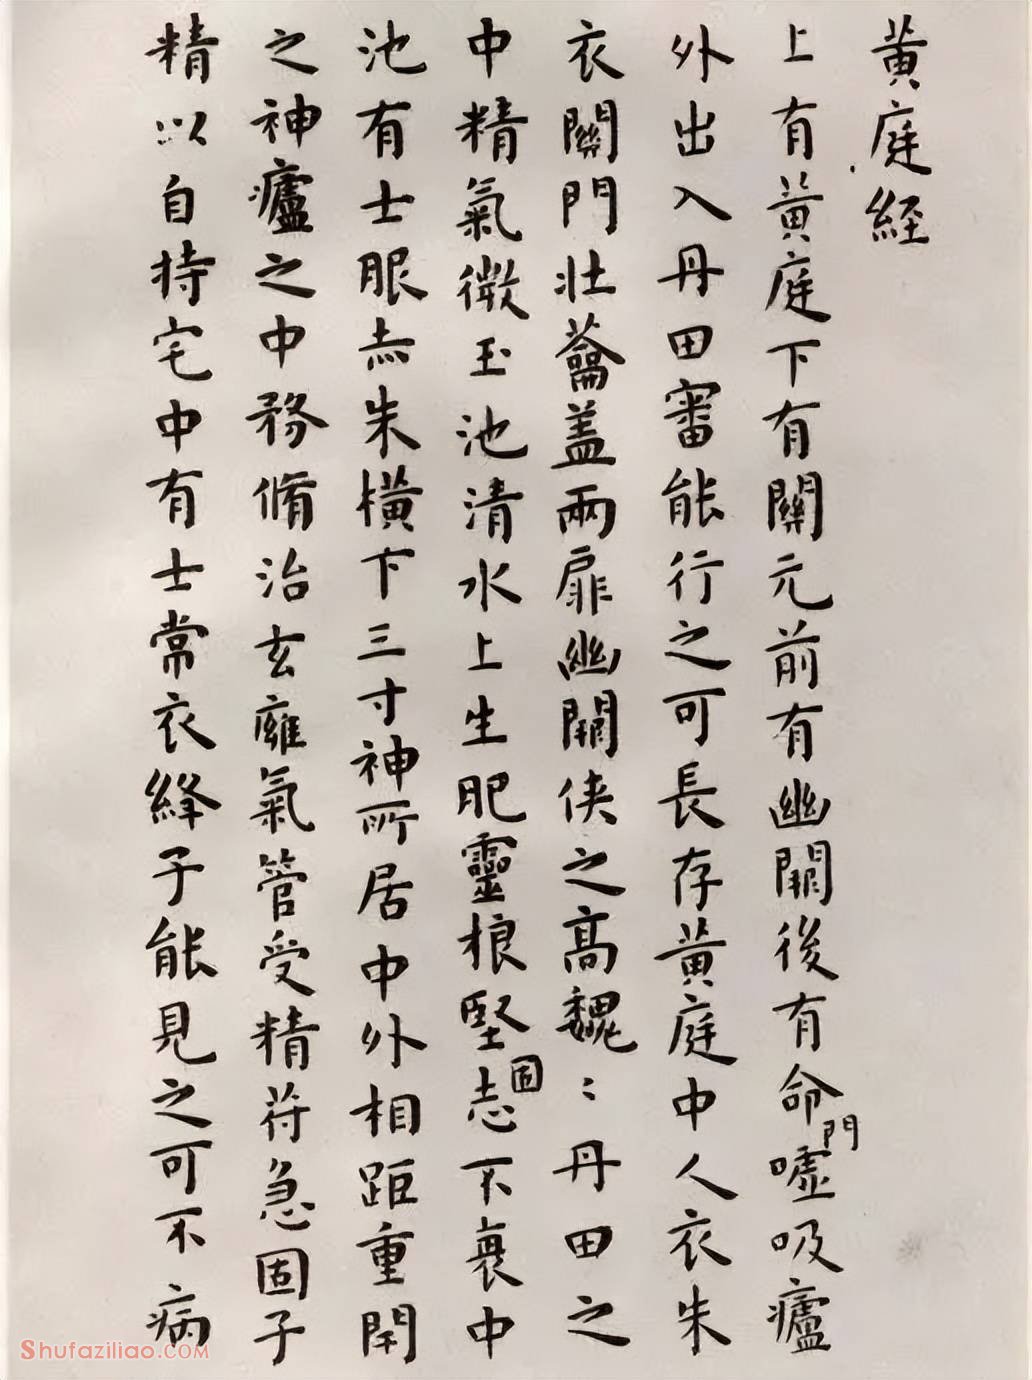 黃庭経
上有黃庭下有關元前有幽闕後有命門噓吸廬
外出入丹田審能行之可長存黃庭中人衣朱
衣關門壯蘥盖兩扉幽闕俠之高魏〻丹田之
中精氣微玉池清水上生肥靈根堅固志不衰中
池有士服赤朱橫下三寸神所居中外相距重閇
之神廬之中務脩治玄廱氣管受精符急固子
精以自持宅中有士常衣絳子能見之可不病
Shufaziliao.COM